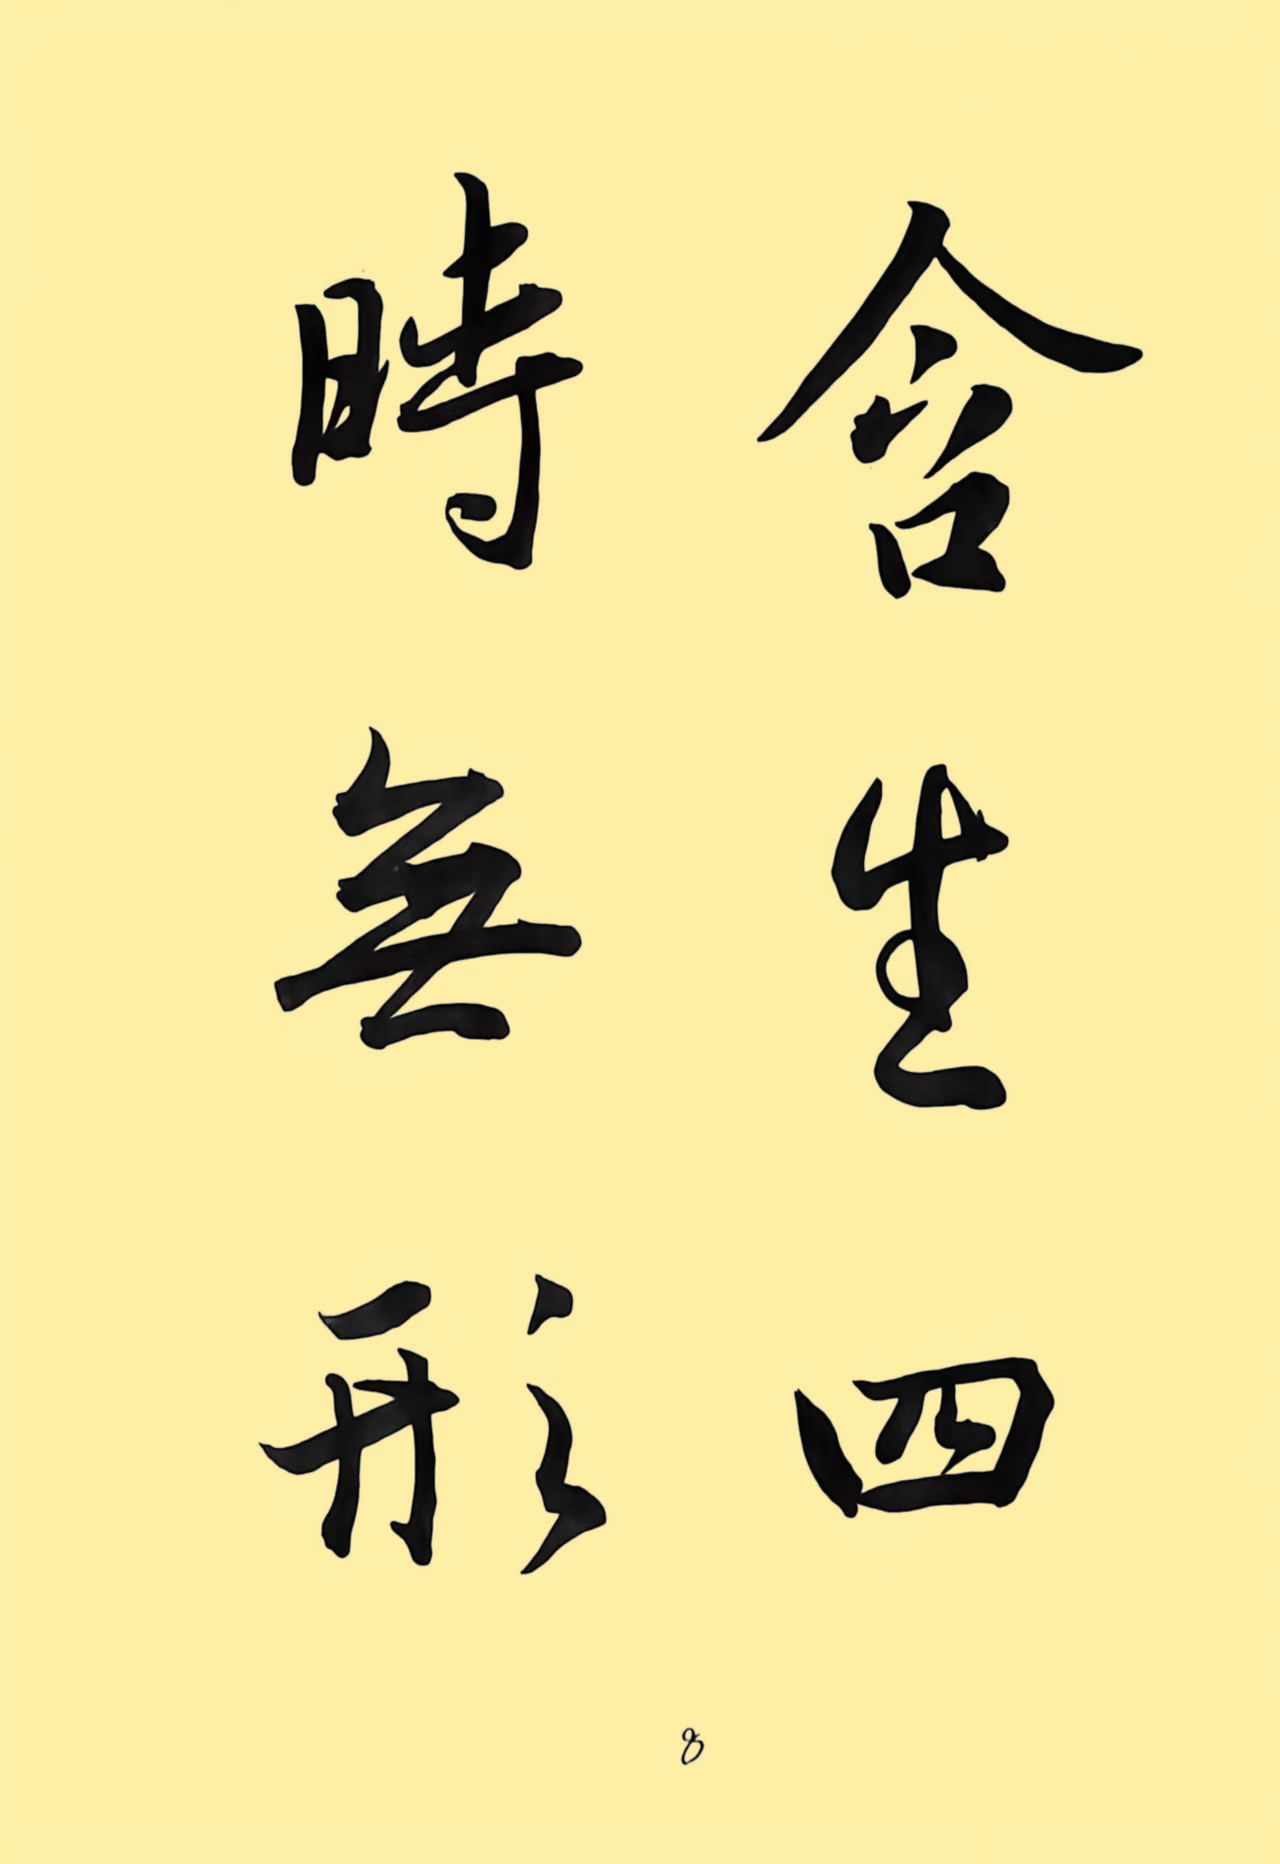 含生四
時無形
8